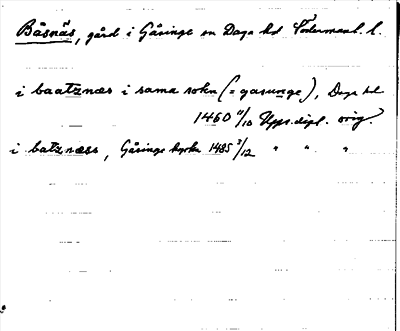 Båsnäs, gård i Gåsinge sn Daga hd Södermanl. l.
i baatznæs i sama sokn (= gasunge), Daga hd
1460 11/10 Upps. dipl. orig.
i batznæss, Gåsinge sockn 1485 3/12 " " "